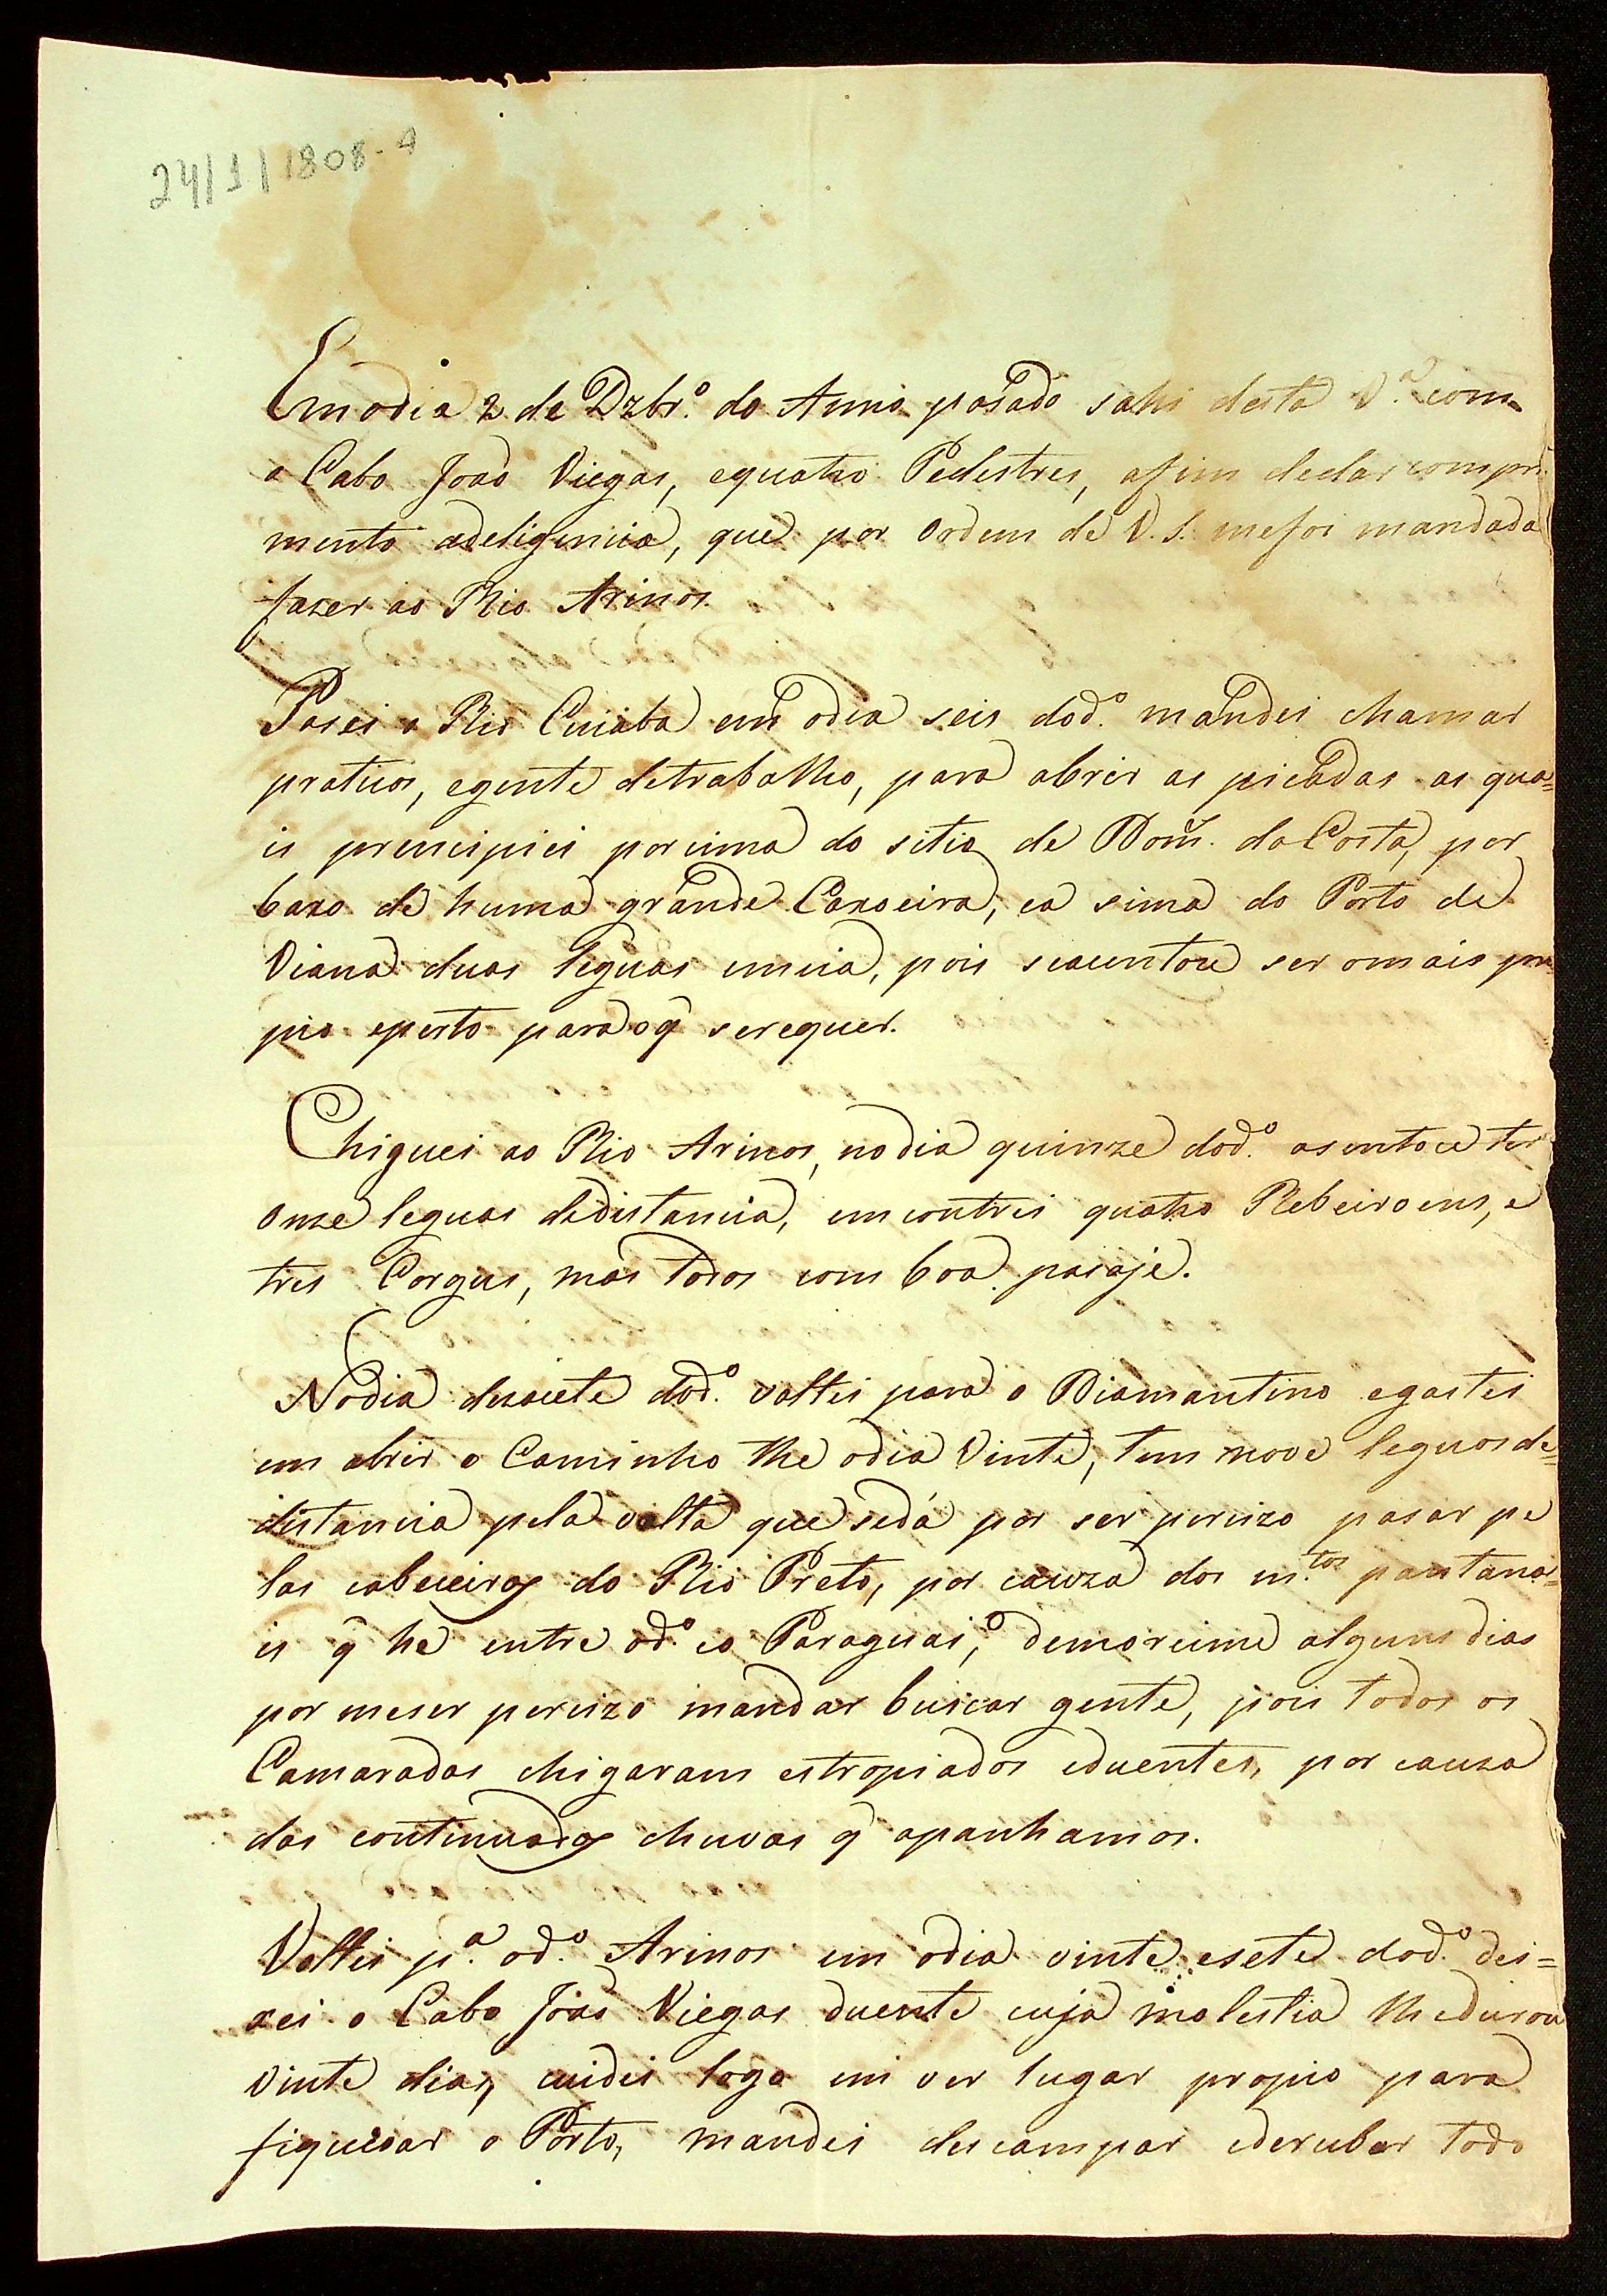 24/1/1808-4
Em odia 2 de Dzbr.º do Anno pasado sahi desta V.ª com
o Cabo João Viegas, equatro Pedestres, afim dedar compri
mento adeligencia, que por ordem de V. S. mefoi mandada
faser ao Rio Arinos.
Pasei o Rio Cuiaba em odia seis dod.º mandei chamar
praticos, egente detrabalho, para abrir as picadas as qua=
is prencipiei porsima do sitio de Dom.ᵒˢ da Costa, por
baxo de huma grande Caxoeira, ea sima do Porto de
Viana duas leguas emeia, pois seacentou ser omais pro
pio eperto para oq̃ serequer.
Chiguei ao Rio Arinos, nodia quinze dod.º asentoce ter
onze leguas dedistancia, emcontrei quatro Rebeiroens, e
tres Corgus, mas todos com boa pasaje.
Nodia desacete dod.º voltei para o Diamantino egastei
em abrir o Caminho the odia Vinte, tem nove leguas de=
distancia pela volta que sedá por ser percizo pasar pe
las cabeceiras do Rio Preto, por cauza dos m.ᵗᵒˢ pantana=
is q̃ he entre od.º eo Paraguai,º demoreime alguns dias
por meser percizo mandar buscar gente, pois todos os
Camaradas chigaram estropiados eduentes, por cauza
das continuadas chuvas q̃ apanhamos.
Voltei p.ª od.º Arinos em odia vinte esete dod.º dei=
xei o Cabo João Viegas duente cuja molestia lhedurou
vinte dias, cuidei logo em ver lugar propio para
fiquesar o Porto, mandei descampar ederubar todo